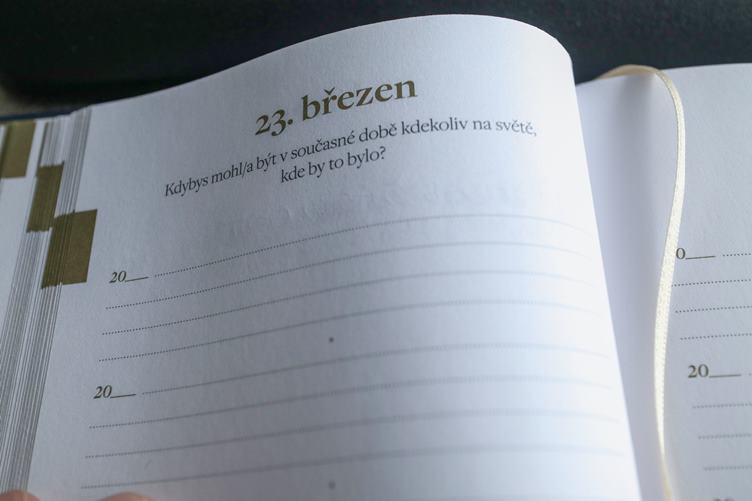 23. březen
Kdybys mohl/a být v současné době kdekoliv na světě,
kde by to bylo?
20__
20__
0__
20__